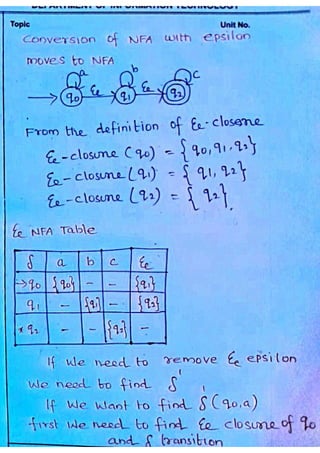 DEPARTMENT OF INFORMATION TECHNOLOGY
Topic Unit No.
Conversion of NFA with epsilon
moves to NFA
a b c
q0 Ɛe q1 Ɛe q2
From the definition of Ɛe-closene
Ɛe-closune (q0) = {q0,q1,q2}
Ɛe-closune (q1) = {q1,q2}
Ɛe-closune (q2) = {q2}.
Ɛe NFA Table
δ a b c Ɛe
→q0 {q0} - - {q1}
q1 - {q1} - {q2}
*q2 - - {q2} -
If we need to remove Ɛe epsilon
we need to find δ'
If we want to find δ'(q0,a)
first we need to find Ɛe closure of q0
and δ transition